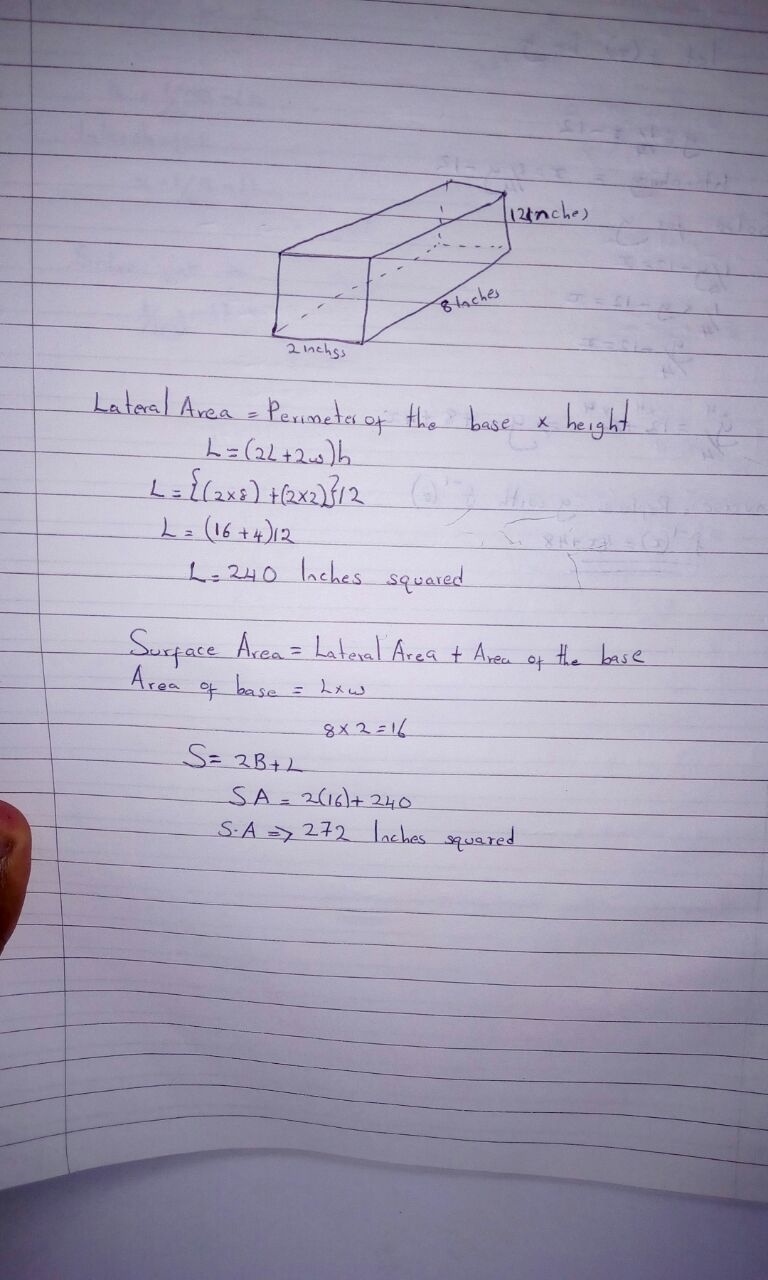 12inches
8 Inches
2 inches
Lateral Area = Perimeter of the base x height
L=(2L+2w)h
L={(2x8)+(2x2)}12
L=(16+4)12
L=240 Inches squared
Surface Area = Lateral Area + Area of the base
Area of base = Lxw
8x2=16
S=2B+L
SA=2(16)+240
S.A => 272 Inches squared